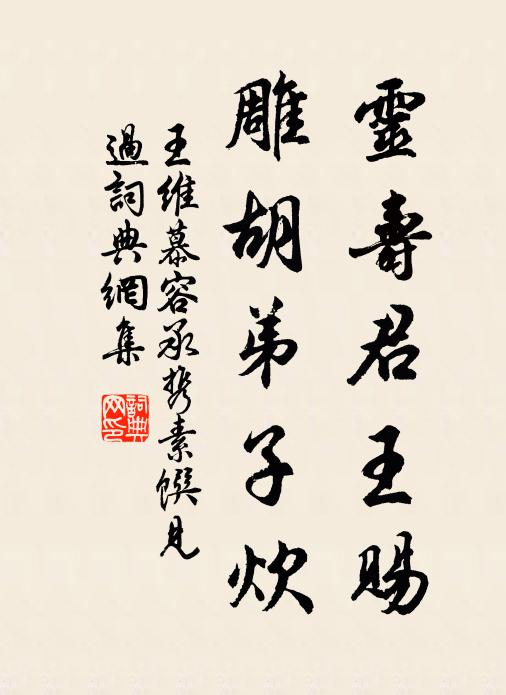 靈壽君王賜
雕胡弟子炊
王維慕容承携素饌見
過詞典網集
詞典
网印